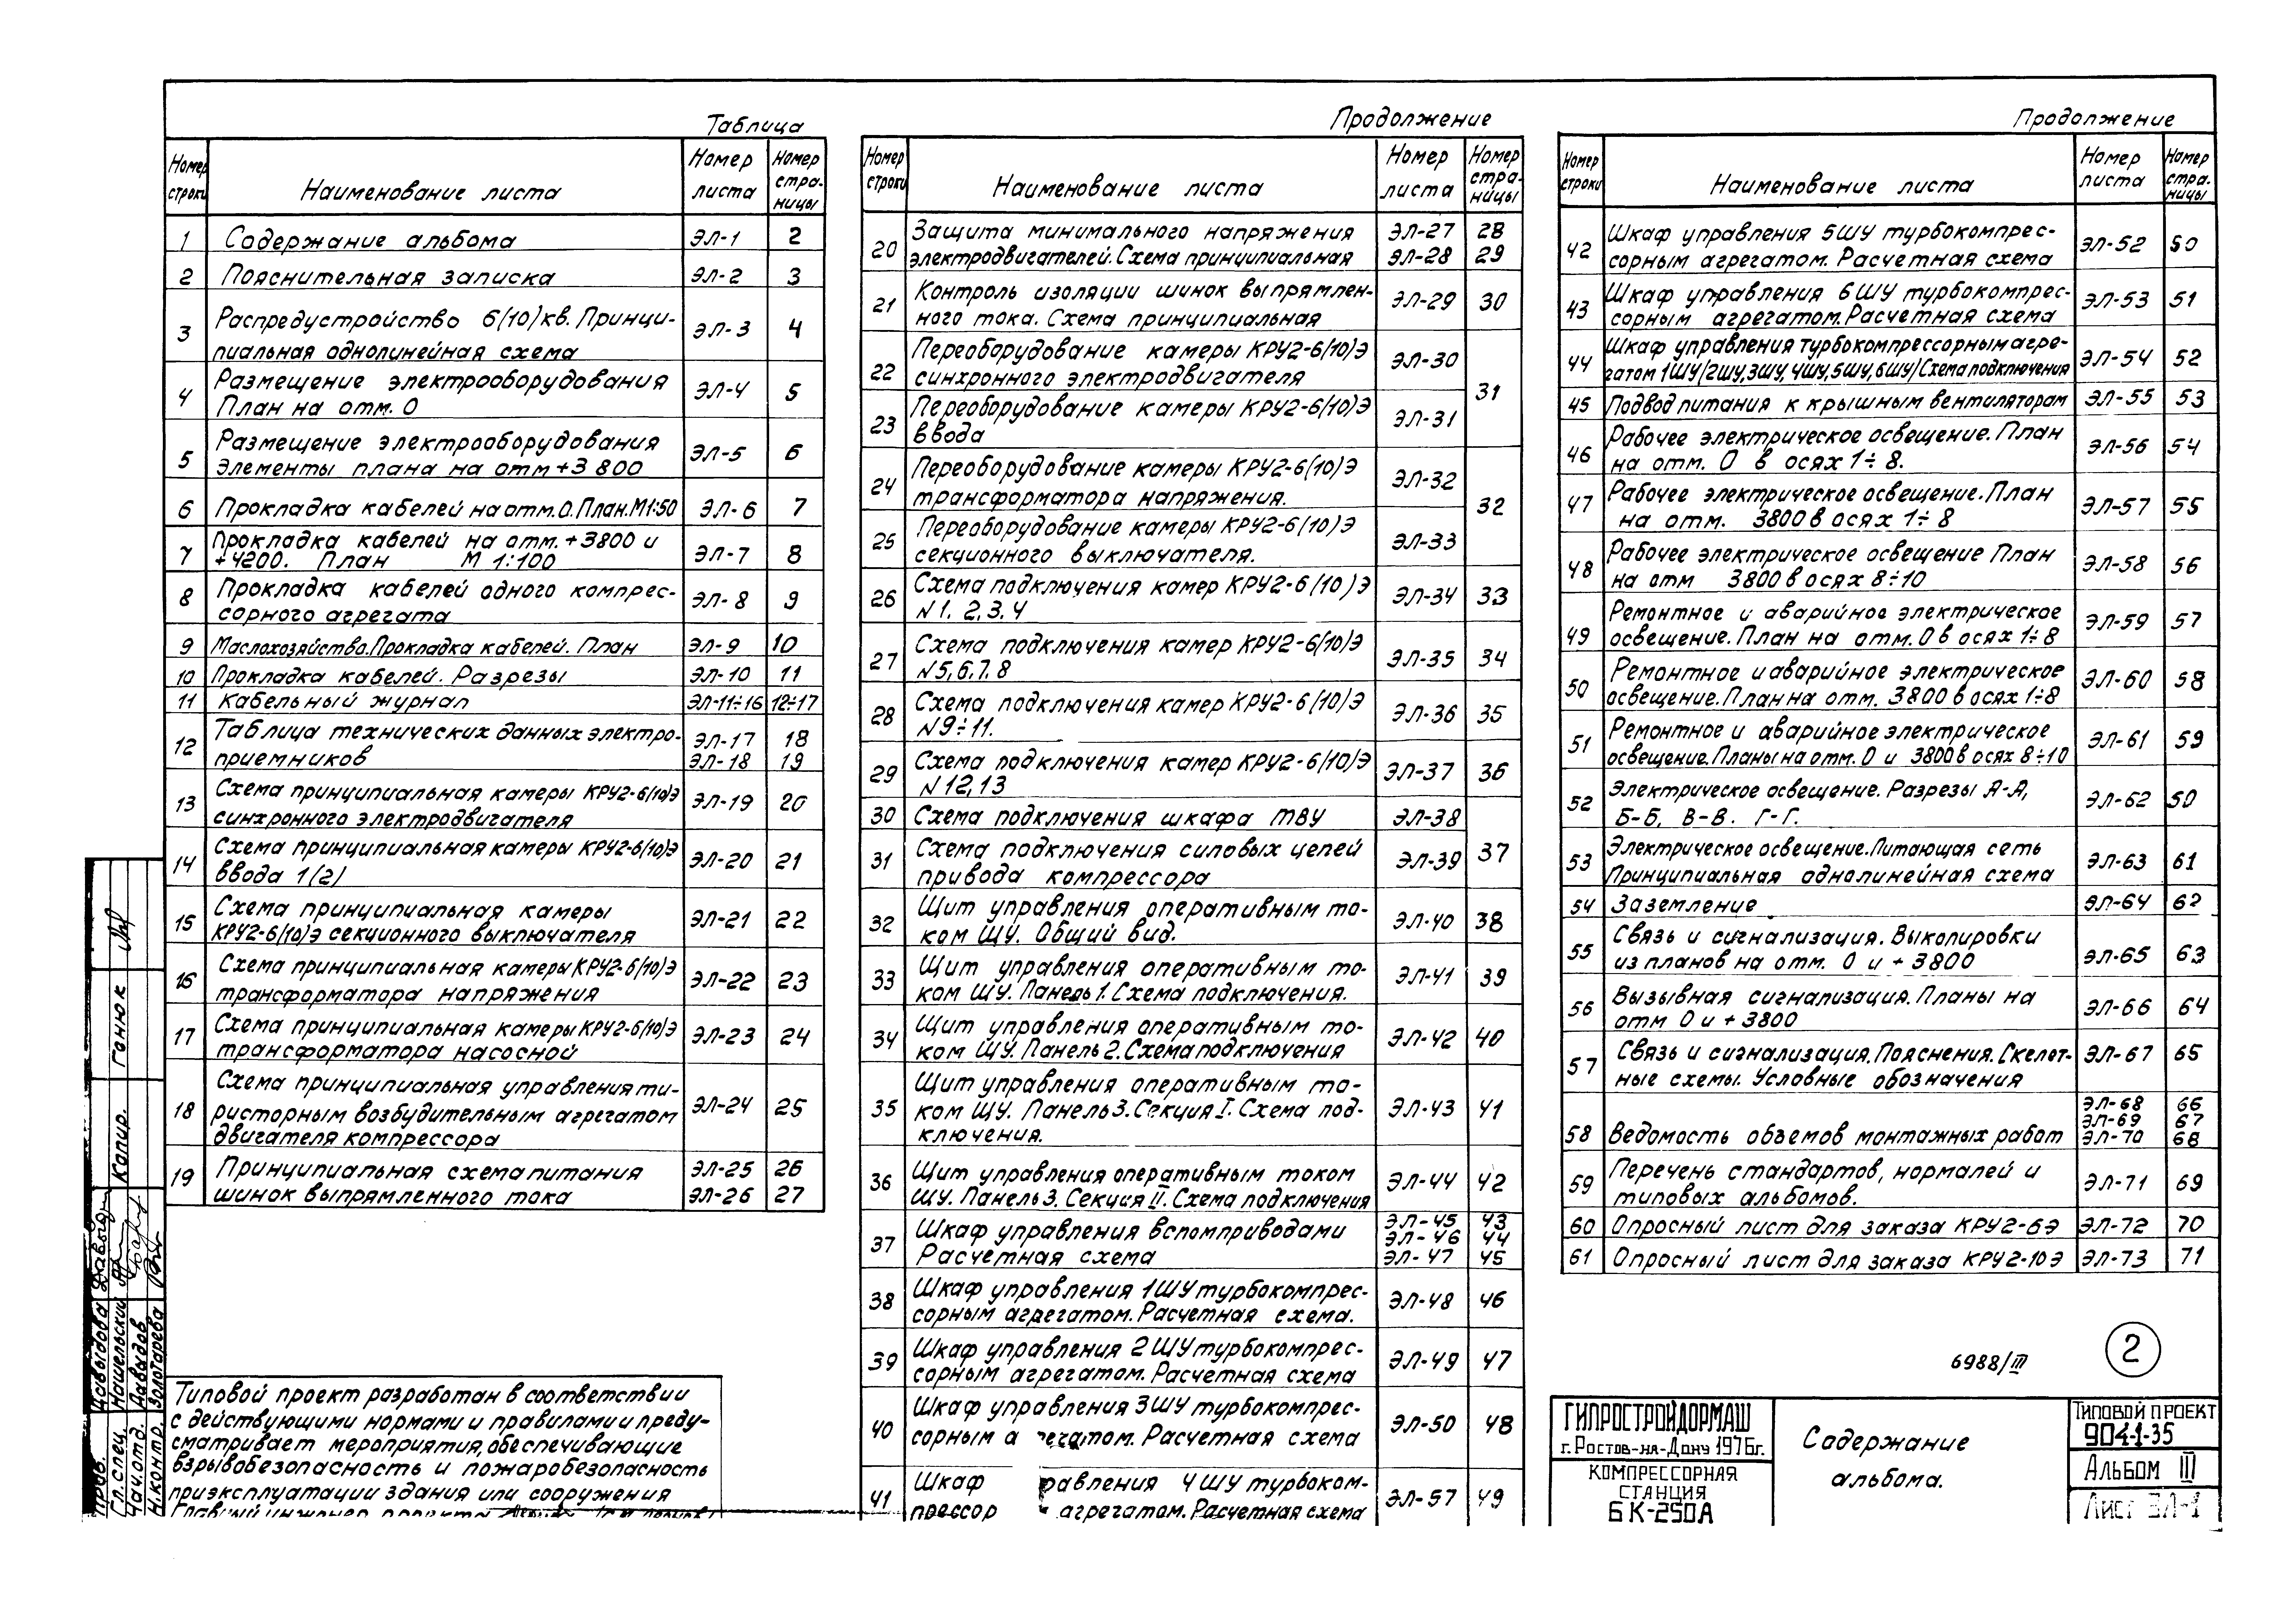 Таблица
Номер строки | Наименование листа | Номер листа | Номер стра-ницы
1 Содержание альбома ЭЛ-1 2
2 Пояснительная записка ЭЛ-2 3
3 Распредустройство 6(10)кв. Принци-
пиальная однолинейная схема ЭЛ-3 4
4 Размещение электрооборудования
План на отм. 0 ЭЛ-4 5
5 Размещение электрооборудования
Элементы плана на отм +3 800 ЭЛ-5 6
6 Прокладка кабелей на отм. 0. План. М1:50 ЭЛ-6 7
7 Прокладка кабелей на отм. +3800 и
+4200. План М 1:100 ЭЛ-7 8
8 Прокладка кабелей одного компрес-
сорного агрегата ЭЛ-8 9
9 Маслохозяйство. Прокладка кабелей. План ЭЛ-9 10
10 Прокладка кабелей. Разрезы ЭЛ-10 11
11 Кабельный журнал ЭЛ-11÷16 12÷17
12 Таблица технических данных электро- ЭЛ-17 18
приемников ЭЛ-18 19
13 Схема принципиальная камеры КРУ2-6(10)Э
синхронного электродвигателя ЭЛ-19 20
14 Схема принципиальная камеры КРУ2-6(10)Э
ввода 1(2) ЭЛ-20 21
15 Схема принципиальная камеры
КРУ2-6(10)Э секционного выключателя ЭЛ-21 22
16 Схема принципиальная камеры КРУ2-6(10)Э
трансформатора напряжения ЭЛ-22 23
17 Схема принципиальная камеры КРУ2-6(10)Э
трансформатора насосной ЭЛ-23 24
18 Схема принципиальная управления ти-
ристорным возбудительным агрегатом
двигателя компрессора ЭЛ-24 25
19 Принципиальная схема питания ЭЛ-25 26
шинок выпрямленного тока ЭЛ-26 27
Типовой проект разработан в соответствии
с действующими нормами и правилами и преду-
сматривает мероприятия, обеспечивающие
взрывобезопасность и пожаробезопасность
при эксплуатации здания или сооружения
Главный инженер проекта
Продолжение
Номер строки | Наименование листа | Номер листа | Номер стра-ницы
20 Защита минимального напряжения ЭЛ-27 28
электродвигателей. Схема принципиальная ЭЛ-28 29
21 Контроль изоляции шинок выпрямлен-
ного тока. Схема принципиальная ЭЛ-29 30
22 Переоборудование камеры КРУ2-6(10)Э
синхронного электродвигателя ЭЛ-30 31
23 Переоборудование камеры КРУ2-6(10)Э
ввода ЭЛ-31
24 Переоборудование камеры КРУ2-6(10)Э
трансформатора напряжения. ЭЛ-32 32
25 Переоборудование камеры КРУ2-6(10)Э
секционного выключателя. ЭЛ-33
26 Схема подключения камер КРУ2-6(10)Э
N1, 2, 3, 4 ЭЛ-34 33
27 Схема подключения камер КРУ2-6(10)Э
N5, 6, 7, 8 ЭЛ-35 34
28 Схема подключения камер КРУ2-6(10)Э
N9÷11. ЭЛ-36 35
29 Схема подключения камер КРУ2-6(10)Э
N12, 13 ЭЛ-37 36
30 Схема подключения шкафа ТВУ ЭЛ-38
31 Схема подключения силовых цепей
привода компрессора ЭЛ-39 37
32 Щит управления оперативным то-
ком ЩУ. Общий вид. ЭЛ-40 38
33 Щит управления оперативным то-
ком ЩУ. Панель 1. Схема подключения. ЭЛ-41 39
34 Щит управления оперативным то-
ком ЩУ. Панель 2. Схема подключения ЭЛ-42 40
35 Щит управления оперативным то-
ком ЩУ. Панель 3. Секция I. Схема под-
ключения. ЭЛ-43 41
36 Щит управления оперативным током
ЩУ. Панель 3. Секция II. Схема подключения ЭЛ-44 42
37 Шкаф управления вспомприводами
Расчетная схема
ЭЛ-45 43
ЭЛ-46 44
ЭЛ-47 45
38 Шкаф управления 1ШУ турбокомпрес-
сорным агрегатом. Расчетная схема. ЭЛ-48 46
39 Шкаф управления 2ШУ турбокомпрес-
сорным агрегатом. Расчетная схема ЭЛ-49 47
40 Шкаф управления 3ШУ турбокомпрес-
сорным а егатом. Расчетная схема ЭЛ-50 48
41 Шкаф равления 4ШУ турбоком-
прессор агрегатом. Расчетная схема ЭЛ-57 49
Продолжение
Номер строки | Наименование листа | Номер листа | Номер стра-ницы
42 Шкаф управления 5ШУ турбокомпрес-
сорным агрегатом. Расчетная схема ЭЛ-52 50
43 Шкаф управления 6ШУ турбокомпрес-
сорным агрегатом. Расчетная схема ЭЛ-53 51
44 Шкаф управления турбокомпрессорным агре-
гатом 1ШУ(2ШУ, 3ШУ, 4ШУ, 5ШУ, 6ШУ) Схема подключения ЭЛ-54 52
45 Подвод питания к крышным вентиляторам ЭЛ-55 53
46 Рабочее электрическое освещение. План
на отм. 0 в осях 1÷8. ЭЛ-56 54
47 Рабочее электрическое освещение. План
на отм. 3800 в осях 1÷8 ЭЛ-57 55
48 Рабочее электрическое освещение План
на отм 3800 в осях 8÷10 ЭЛ-58 56
49 Ремонтное и аварийное электрическое
освещение. План на отм. 0 в осях 1÷8 ЭЛ-59 57
50 Ремонтное и аварийное электрическое
освещение. План на отм. 3800 в осях 1÷8 ЭЛ-60 58
51 Ремонтное и аварийное электрическое
освещение. Планы на отм. 0 и 3800 в осях 8÷10 ЭЛ-61 59
52 Электрическое освещение. Разрезы А-А,
Б-Б, В-В. Г-Г. ЭЛ-62 50
53 Электрическое освещение. Питающая сеть
Принципиальная однолинейная схема ЭЛ-63 61
54 Заземление ЭЛ-64 62
55 Связь и сигнализация. Выкопировки
из планов на отм. 0 и +3800 ЭЛ-65 63
56 Вызывная сигнализация. Планы на
отм 0 и +3800 ЭЛ-66 64
57 Связь и сигнализация. Пояснения. Скелет-
ные схемы. Условные обозначения ЭЛ-67 65
ЭЛ-68 66
ЭЛ-69 67
58 Ведомость объемов монтажных работ ЭЛ-70 68
59 Перечень стандартов, нормалей и
типовых альбомов. ЭЛ-71 69
60 Опросный лист для заказа КРУ2-6Э ЭЛ-72 70
61 Опросный лист для заказа КРУ2-10Э ЭЛ-73 71
6988/III
2
ГИПРОСТРОЙДОРМАШ
г. Ростов-на-Дону 1976г.
КОМПРЕССОРНАЯ
СТАНЦИЯ
6К-250А
Содержание
альбома.
ТИПОВОЙ ПРОЕКТ
904-1-35
АЛЬБОМ III
Лист ЭЛ-1
Пров. Давыдова
Гл. спец. Нашельский
Нач. отд. Давыдов
Н. контр. Золотарева
Копир. Гонюк